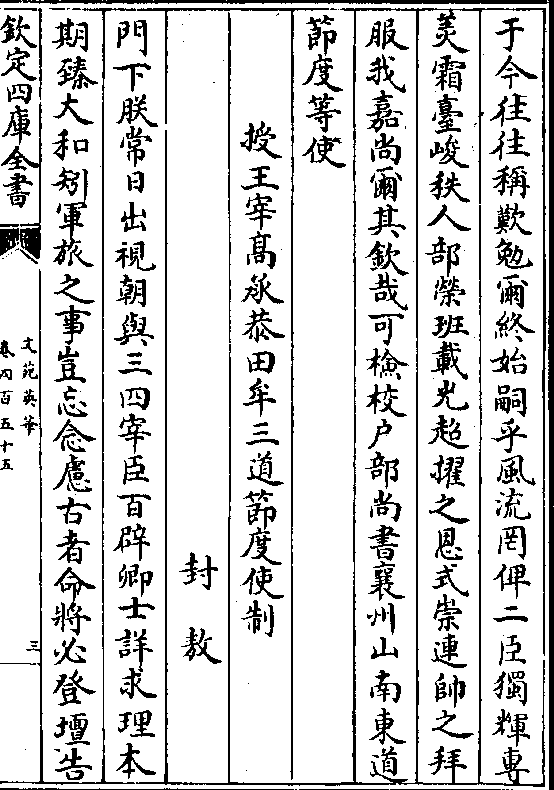 于今往往稱歎勉爾終始嗣乎風流罔俾二臣獨輝專
美霜臺峻秩人部榮班載光超擢之恩式崇連帥之拜
服我嘉尚爾其欽哉可檢校户部尚書襄州山南東道
節度等使
授王宰髙承恭田牟三道節度使制
封敖
門下朕常日出視朝與三四宰臣百辟卿士詳求理本
期臻大和矧軍旅之事豈忘念慮古者命將必登壇告
欽定四庫全書
文苑英華
卷四百五十五
三